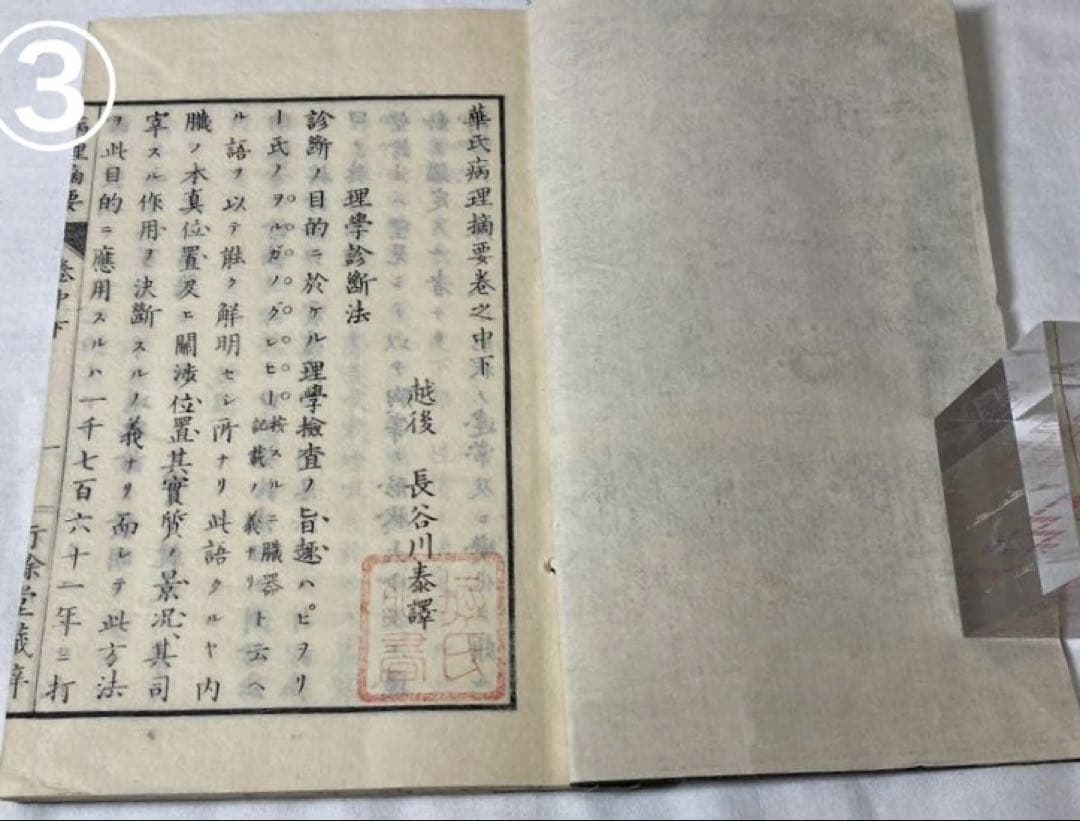 ③
華氏病理摘要卷之中下
越後 長谷川泰譯
理學診斷法
診斷ノ目的ニ於ケル理學檢査ノ旨趣ハピヲリ
ー氏ノヲルガノグレヒー按スルニ臟器ト云ヘ
記載ノ義ナリ
ル語ヲ以テ能ク解明セシ所ナリ此語タルヤ内
臟ノ本真位置及ヒ關渉位置其實質ノ景况其司
宰スル作用ヲ決斷スルノ義ナリ而シテ此方法
ヲ此目的ニ應用スルハ一千七百六十一年ニ打
病理摘要 卷中下 一 行餘堂藏梓